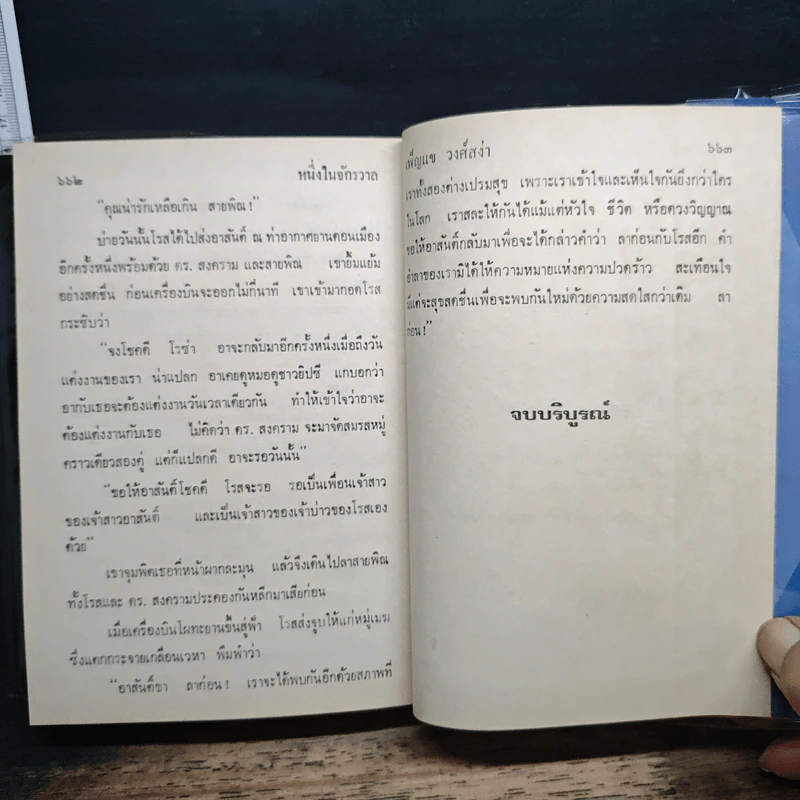 ๖๖๒
หนึ่งในจักรวาล
“คุณน่ารักเหลือเกิน สายพิณ!”
บ่ายวันนั้นโรสได้ไปส่งอาสันติ์ ณ ท่าอากาศยานดอนเมือง
อีกครั้งหนึ่งพร้อมด้วย ดร. สงคราม และสายพิณ เขายิ้มแย้ม
อย่างสดชื่น ก่อนเครื่องบินจะออกไม่กี่นาที เขาเข้ามากอดโรส
กระซิบว่า
“จงโชคดี โรซ่า อาจะกลับมาอีกครั้งหนึ่งเมื่อถึงวัน
แต่งงานของเรา น่าแปลก อาเคยดูหมอดูชาวยิปซี แกบอกว่า
อากับเธอจะต้องแต่งงานวันเวลาเดียวกัน ทำให้เข้าใจว่าอาจะ
ต้องแต่งงานกับเธอ ไม่คิดว่า ดร. สงคราม จะมาจัดสมรสหมู่
คราวเดียวสองคู่ แต่ก็แปลกดี อาจะรอวันนั้น”
“ขอให้อาสันติ์โชคดี โรสจะรอ รอเป็นเพื่อนเจ้าสาว
ของเจ้าสาวอาสันติ์ และเป็นเจ้าสาวของเจ้าบ่าวของโรสเอง
ด้วย”
เขาจุมพิตเธอที่หน้าผากละมุน แล้วจึงเดินไปลาสายพิณ
ทั้งโรสและ ดร. สงครามประคองกันหลีกมาเสียก่อน
เมื่อเครื่องบินโผทะยานขึ้นสู่ฟ้า โรสส่งจูบให้แก่หมู่เมฆ
ซึ่งแตกกระจายเกลื่อนเวหา พึมพำว่า
“อาสันติ์ขา ลาก่อน! เราจะได้พบกันอีกด้วยสภาพที่
เพ็ญแข วงศ์สง่า
๖๖๓
เราทั้งสองต่างเปรมสุข เพราะเราเข้าใจและเห็นใจกันยิ่งกว่าใคร
ในโลก เราสละให้กันได้แม้แต่หัวใจ ชีวิต หรือดวงวิญญาณ
ขอให้อาสันติ์กลับมาเพื่อจะได้กล่าวคำว่า ลาก่อนกับโรสอีก คำ
อำลาของเรามิได้ให้ความหมายแห่งความปวดร้าว สะเทือนใจ
มีแต่จะสุขสดชื่นเพื่อจะพบกันใหม่ด้วยความสดใสกว่าเดิม ลา
ก่อน!”
จบบริบูรณ์